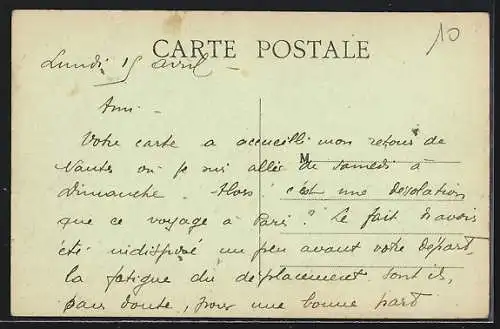 10
CARTE POSTALE
Lundi 15 avril
Ami -
Votre carte a accueilli mon retour de
M
Nantes où je suis allée de samedi à
dimanche. Alors! c'est une desolation
que ce voyage à Paris? Le fait d'avoir
été indisposé un peu avant votre départ,
la fatigue du déplacement sont ils,
sans doute, pour une bonne part